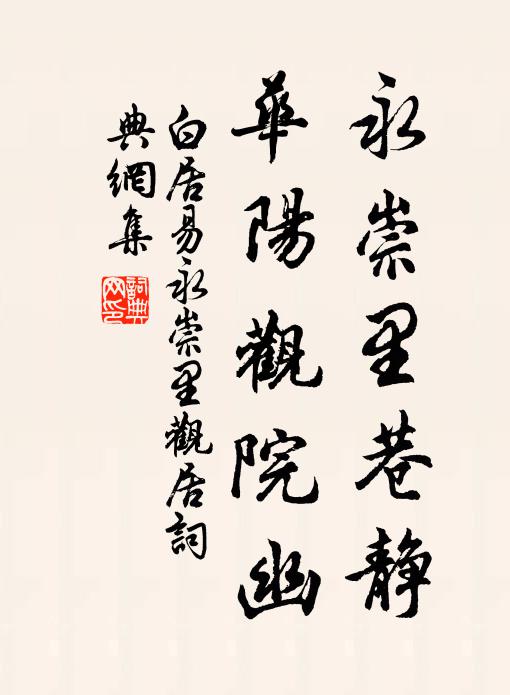 永崇里巷静
華陽觀院幽
白居易永崇里觀居詞
典網集
詞典网印